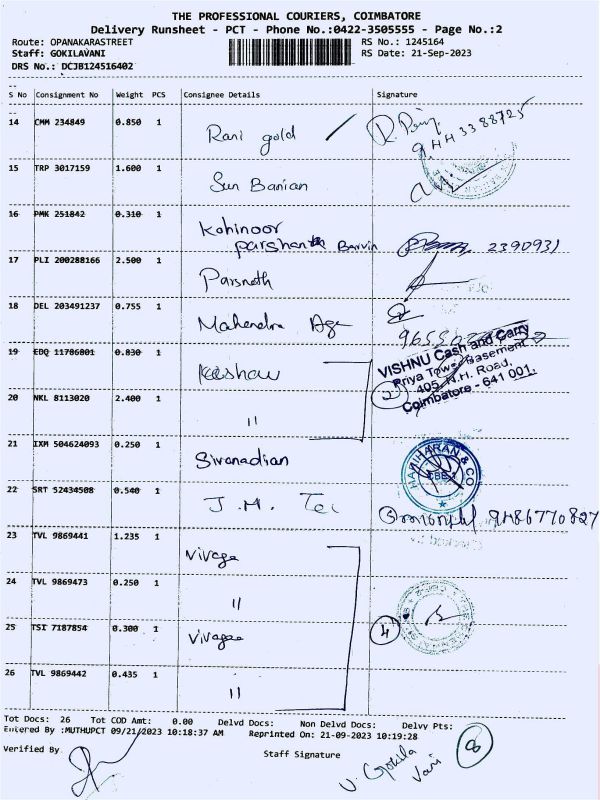 THE PROFESSIONAL COURIERS, COIMBATORE
Delivery Runsheet - PCT - Phone No.:0422-3505555 - Page No.:2
Route: OPANAKARASTREET RS No.: 1245164
Staff: GOKILAVANI RS Date: 21-Sep-2023
DRS No.: DCJB124516402
S No Consignment No Weight PCS Consignee Details Signature
14 CMM 234849 0.850 1 Rani gold
15 TRP 3017159 1.600 1 Sun Banian
16 PMK 251842 0.310 1 Kohinoor
Barvin 2390931
17 PLI 200288166 2.500 1 Parsnath
18 DEL 203491237 0.755 1 Mahendra
19 EDQ 11706801 0.830 1 Keshav
VISHNU Cash and Carry
Priya Tower Basement
405, N.H. Road,
Coimbatore - 641 001.
2
20 NKL 8113020 2.400 1 "
21 IXM 504624093 0.250 1 Sivanadian
HARIHARAN & CO
CBE-1
22 SRT 52434508 0.540 1 J.M.
23 TVL 9869441 1.235 1
24 TVL 9869473 0.250 1 "
25 TSI 7187854 0.300 1
4
26 TVL 9869442 0.435 1 "
Tot Docs: 26 Tot COD Amt: 0.00 Delvd Docs: Non Delvd Docs: Delvy Pts:
Entered By :MUTHUPCT 09/21/2023 10:18:37 AM Reprinted On: 21-09-2023 10:19:28
8
Verified By Staff Signature
V. Gokila
Vani